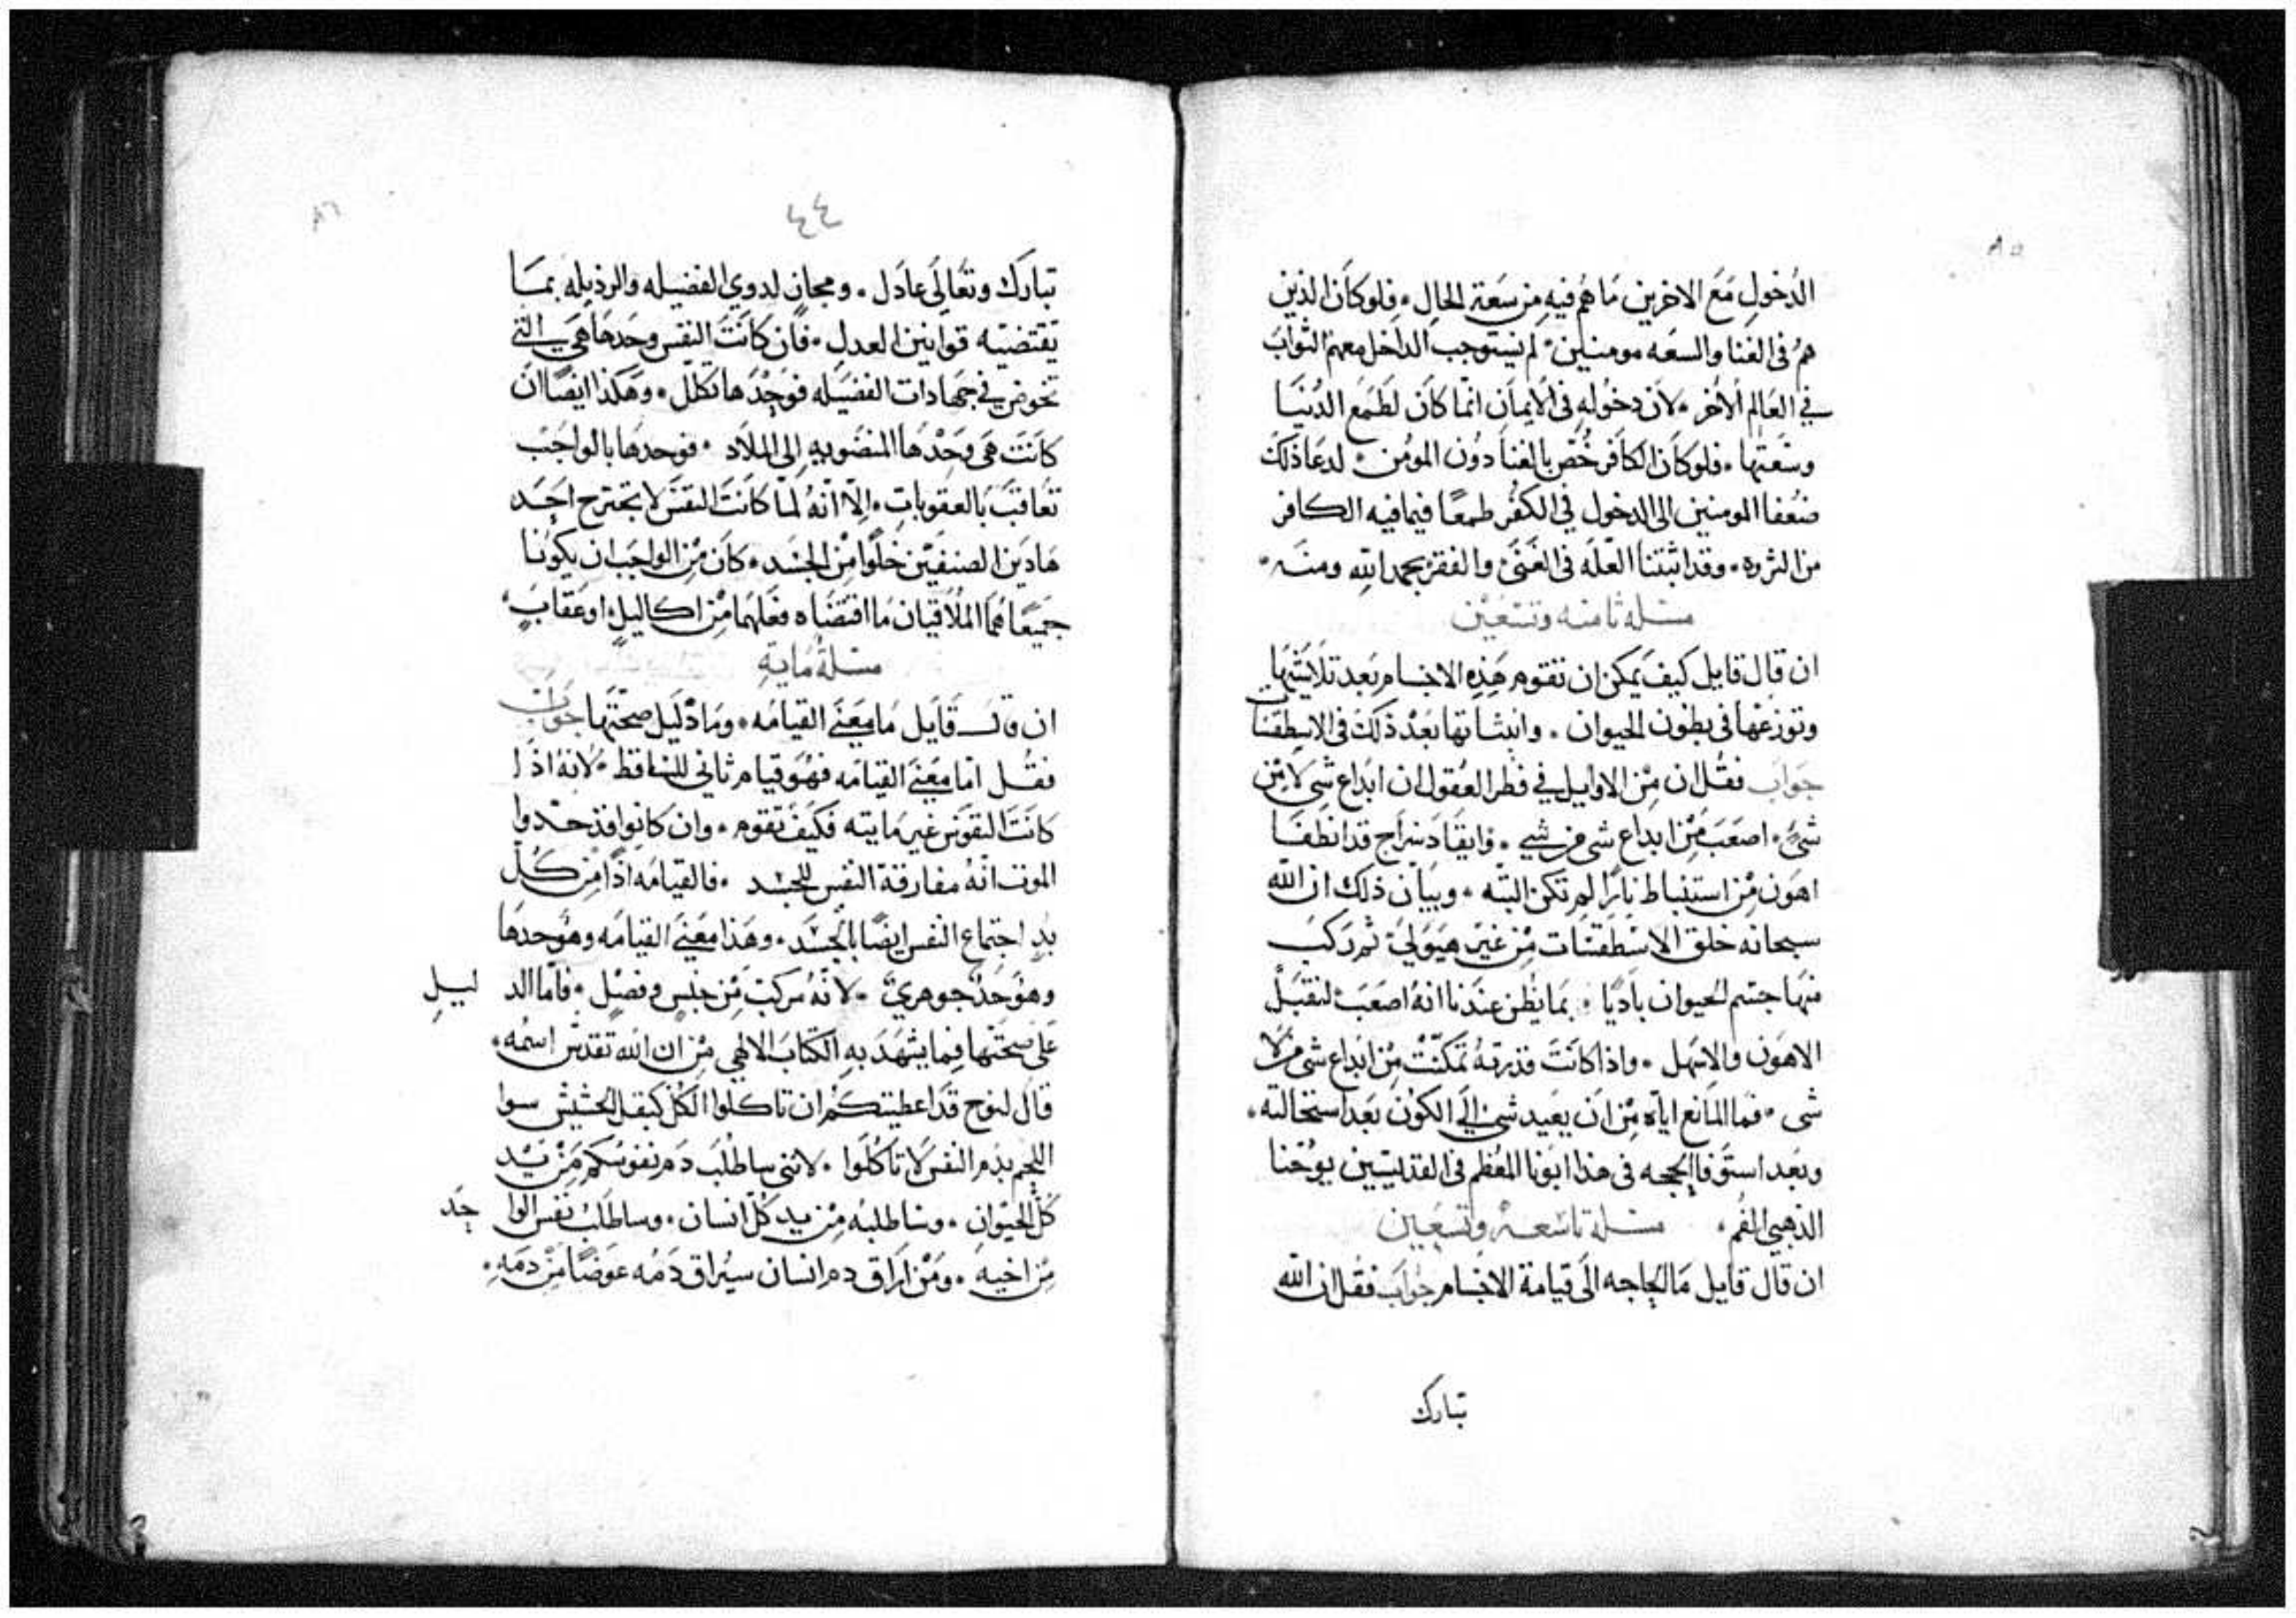 ٨٥
الدخول مع الاخرين ما هم فيه من سعة الحال • فلو كان الذين
هم فى الغنا والسعه مومنين • لم يستوجب الداخل معهم الثواب
في العالم الاخر • لان دخوله فى الايمان انما كان لطمع الدنيا
وسعتها • فلو كان الكافر خص بالغنا دون المومن • لدعا ذلك
ضعفا المومنين الى الدخول في الكفر طمعًا فيما فيه الكافر
من الثروه • وقد اثبتنا العله فى الغنى والفقر بحمد الله ومنه •
مسله ثامنه وتسعين
ان قال قايل كيف يمكن ان تقوم هذه الاجسام بعد تلاشيها
وتوزعها فى بطون الحيوان • وانبثاتها بعد ذلك فى الاسطقسات
جواب فقل ان من الاوايل في فطر العقول ان ابداع شي لا من
شي • اصعب من ابداع شي من شي • وايقاد سراج قد انطفا
اهون من استنباط نارًا لم تكن البته • وبيان ذلك ان الله
سبحانه خلق الاسطقسات من غير هيولى ثم ركب
منها جسم الحيوان باديًا • بما يظن عندنا انه اصعب لنقبل
الاهون والاسهل • واذا كانت قدرته تمكنت من ابداع شي من لا
شى • فما المانع اياه من ان يعيد شي الي الكون بعد استحالته •
وبعد استوفا الحجه فى هذا ابونا المعظم فى القديسين يوحنا
الذهبي الفم • مسله تاسعه وتسعين
ان قال قايل ما الحاجه الى قيامة الاجسام جواب فقل ان الله
تبارك
٨٦
٤٤
تبارك وتعالى عادل • ومجازٍ لدوي الفضيله والرذيله بما
تقتضيه قوانين العدل • فان كانت النفس وحدها هي التي
تخوض في جهادات الفضيله فوحدها تكلل • وهكذا ايضًا ان
كانت هى وحدها المنضويه الى الملاد • فوحدها بالواجب
تعاقب بالعقوبات • الا انه لما كانت النفس لا تجترح احد
هادين الصنفين خلوًا من الجسد • كان من الواجب ان يكونا
جميعًا هما الملاقيان ما اقتضاه فعلهما من اكاليل او عقاب •
مسلة مايه
ان قال قايل ما معنى القيامه • وما دليل صحتها جواب
فقل اما معنى القيامه فهو قيام ثاني للساقط • لانه اذا
كانت النفوس غير مايته فكيف تقوم • وان كانوا قد حدوا
الموت انه مفارقة النفس للجسد • فالقيامه اذًا من كل
بد اجتماع النفس ايضًا بالجسد • وهذا معنى القيامه وهو حدها
وهو حد جوهري • لانه مركب من جنس وفصل • فاما الدليل
على صحتها فيما يشهد به الكتاب الالهي من ان الله تقدس اسمه •
قال لنوح قد اعطيتكم ان تاكلوا الكل كبقل الحشيش سوا
اللحم بدم النفس لا تاكلوا • لانني ساطلب دم نفوسكم من يد
كل الحيوان • وساطلبه من يد كل انسان • وساطلب نفس الواحد
من اخيه • ومن اراق دم انسان سيُراق دمه عوضًا من دمه •